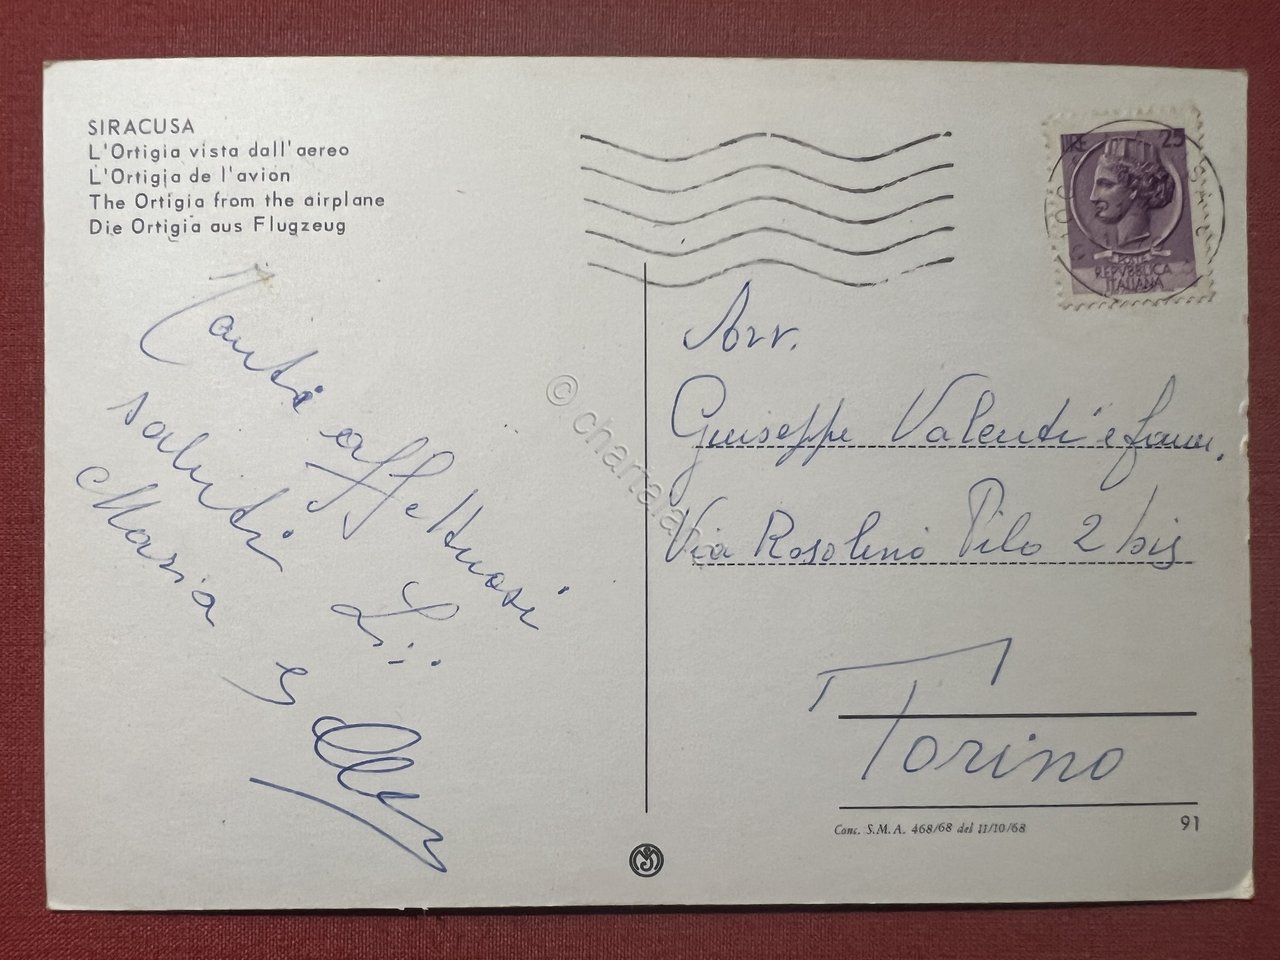 SIRACUSA
L'Ortigia vista dall'aereo
L'Ortigia de l'avion
The Ortigia from the airplane
Die Ortigia aus Flugzeug
Tanti affettuosi
saluti
Maria e
LIRE 25
POSTE
REPVBBLICA
ITALIANA
Avv.
Giuseppe Valenti e fam.
Via Rosolino Pilo 2 bis
Torino
Conc. S.M.A. 468/68 del 11/10/68
91
© chartaland